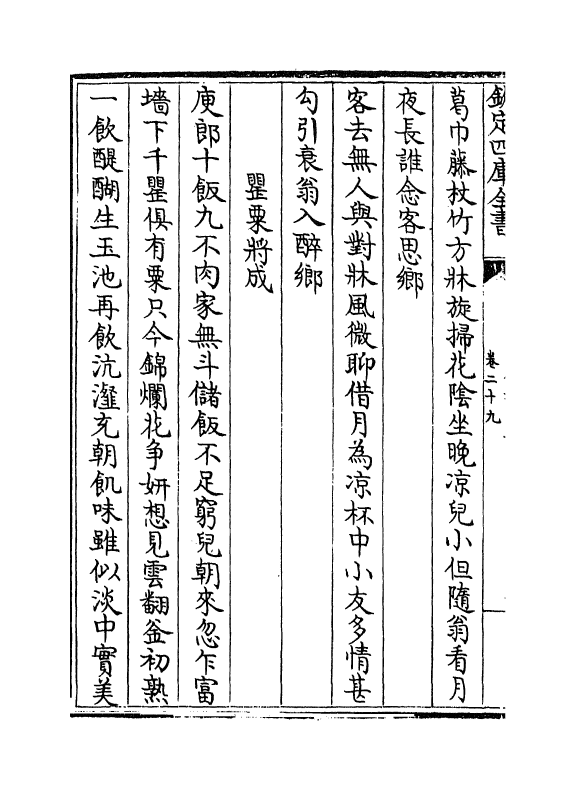 欽定四庫全書
卷二十九
葛巾藤杖竹方牀旋掃花陰坐晚凉兒小但隨翁看月
夜長誰念客思鄉
客去無人與對牀風微聊借月為凉杯中小友多情甚
勾引衰翁入醉鄉
罌粟將成
庾郎十飯九不肉家無斗儲飯不足窮兒朝來忽乍富
墻下千罌俱有粟只今錦爛花争妍想見雲翻釜初熟
一飲醍醐生玉池再飲沆瀣充朝飢味雖似淡中實美